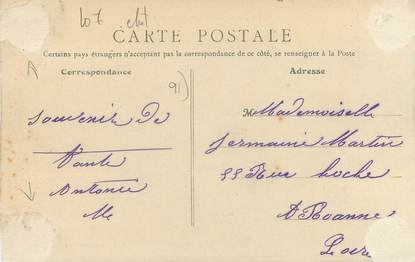 107
CARTE POSTALE
Certains pays étrangers n'acceptant pas la correspondance de ce côté, se renseigner à la Poste
Correspondance
Adresse
91)
Souvenir de
Tante
Antonie
M
Mademoiselle
Germaine Martin
55 Rue hoche
A Roanne
Loire